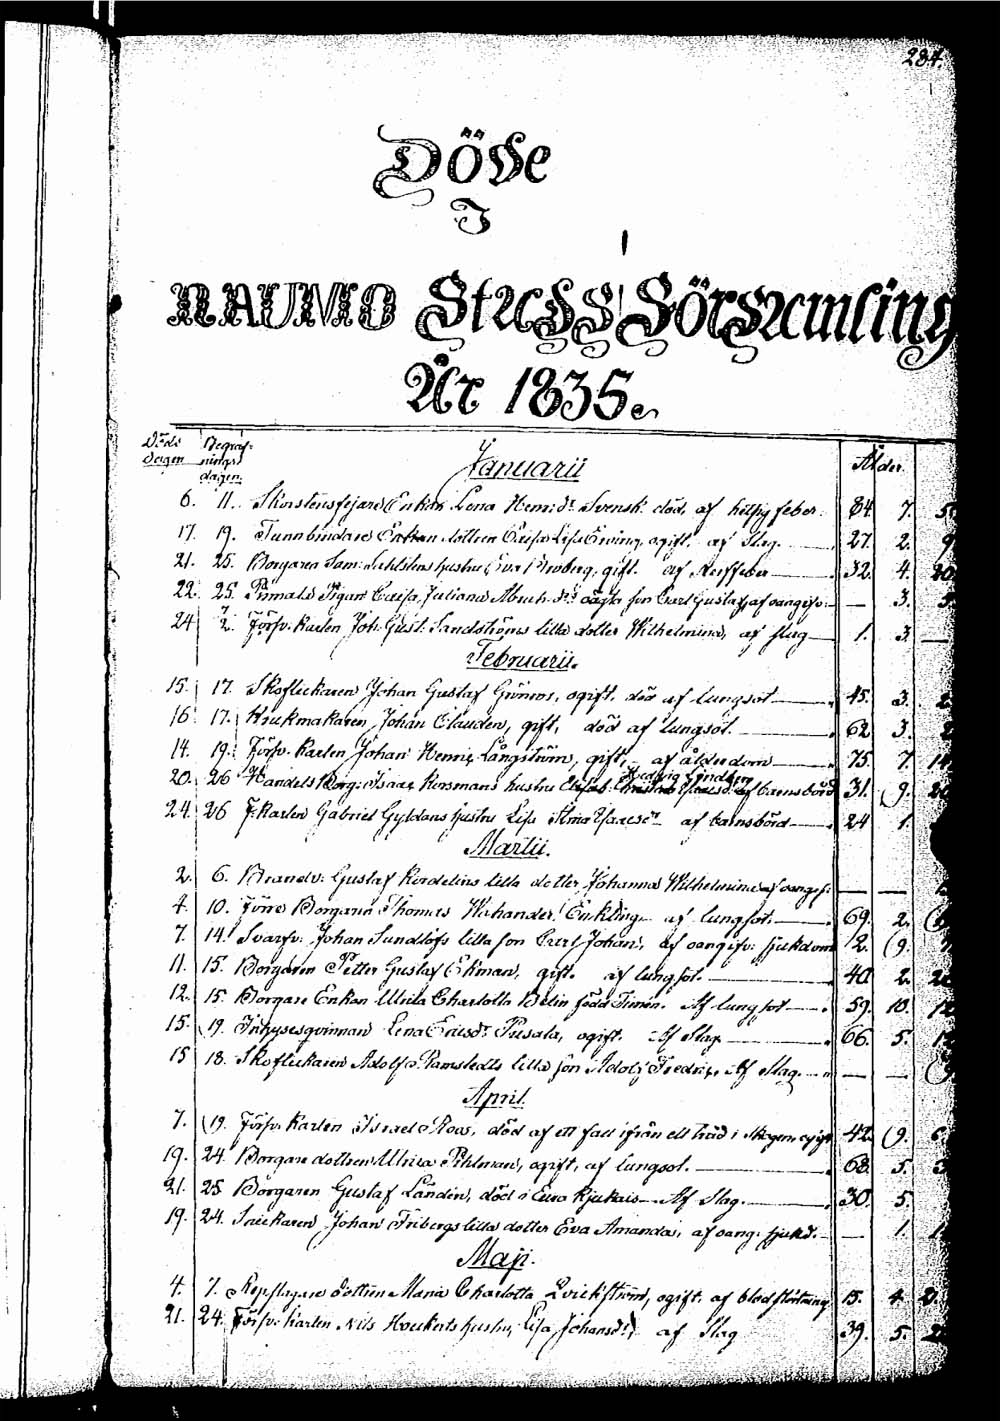 234.
Döde
I
RAUMO Stads Församling
År 1835.
Döds dagen
Begraf-nings dagen
Januarii
Ålder
6. 11. Skorstensfejare Enkan Lena Henr:dr Svensk död af hitsig feber. 84 7.
17. 19. Tunnbindare dottren Caisa Lisa ogift. af Slag. 27. 2.
21. 25. Borgaren Sam: hustru Eva gift. af Nerffeber 32. 4. 20
22. 25. Pigan Caisa Juliana oägta son Carl Gustaf, af oangifv: — 3.
24 2. Försv. Karlen Joh: Gust: Sandströms lilla dotter Wilhelmina, af slag 1. 3. —
Februarii.
15. 17. Skoflickaren Johan Gustaf Grönros, ogift, död af lungsot 45. 3.
16 17. Krukmakaren Johan Clauden, gift, död af lungsot. 62 3.
14. 19. Försv. Karlen Johan Henric Långström, gift, af ålderdom 75. 7. 14
20. 26 Handels Borg: Isaac Korsmans hustru Hedvig af barnsbörd 31. (9.
24. 26 F: Karlen Gabriel Gyldans hustru Lisa af barnsbörd 24 1.
Martii.
2. 6. Brandv: Gustaf Kordelins lilla dotter Johanna Wilhelmina af oangif: — —
4. 10. Förre Borgaren Thomas Wahander Enkling af lungsot. 69. 2.
7. 14. Svarfv: Johan Sundlöfs lilla son Carl Johan, af oangifv: sjukdom 2. (9.
11. 15. Borgaren Petter Gustaf Ekman, gift. af lungsot. 40. 2.
12. 15. Borgare Enkan Ulrica Charlotta Belin född Timén. Af lungsot 59. 10. 12
15. 19. Inhysesqvinnan Lena Ericsdr Pusala, ogift. Af Slag 66. 5.
15 18. Skoflickaren Adolf Ramstedts lilla son Adolf Fredric, Af Slag. — —
April.
7. (19. Försv. Karlen Israel Roos, död af ett fall ifrån ett träd i Skogen, ogift 42. (9. 6
19. 24. Borgare dottren Ulrica Pihlman, ogift, af lungsot. 68. 5. 3
21. 25. Borgaren Gustaf Landin, död i Eura Af Slag. 30. 5.
19. 24. Snickaren Johan Fribergs lilla dotter Eva Amanda, af oang: sjukd. — 1.
Maji.
4. 7. Repslagare dottren Maria Charlotta Qvickström, ogift. af blodstörtning 15. 4. 21
21. 24. Försv: Karlen Nils hustru, Lisa Johansdr, af Slag 39. 5.